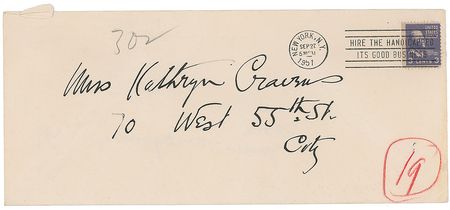 302
NEW YORK, N.Y.
SEP 27
1951
HIRE THE HANDICAPPED
ITS GOOD BUSINESS
UNITED STATES
3 CENTS 3
Miss Kathryn Cravens
70 West 55th St.
City
19